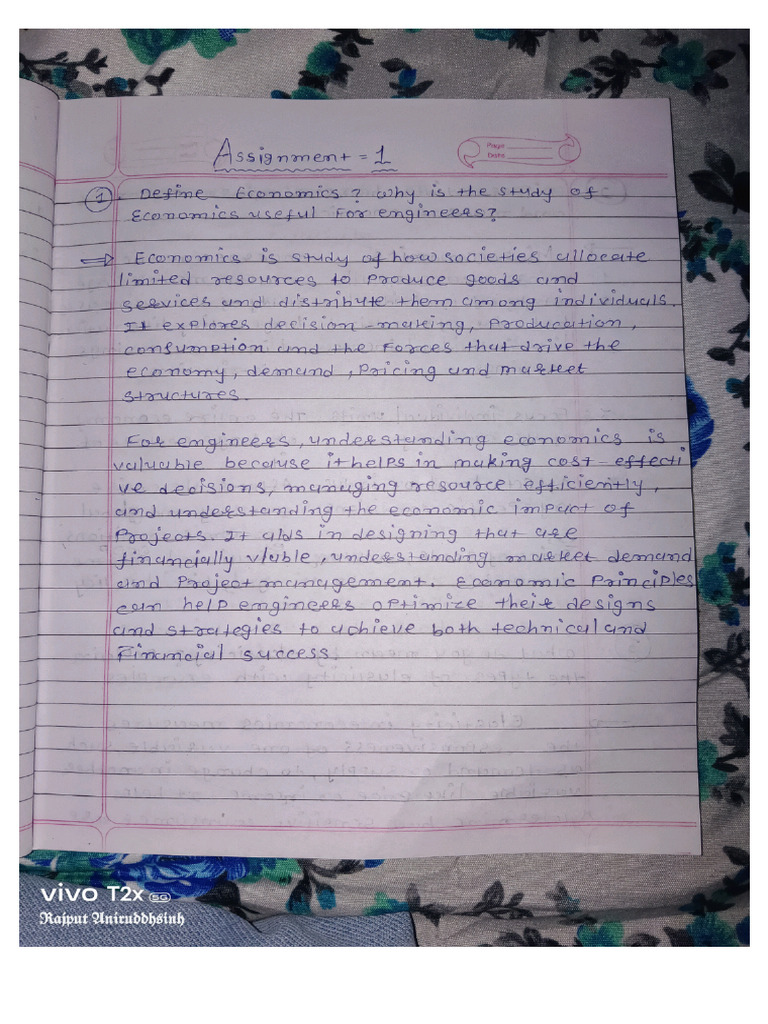 Assignment = 1
Page
Date
1. Define Economics? Why is the study of
Economics useful for engineers?
⇒ Economics is study of how societies allocate
limited resources to produce goods and
services and distribute them among individuals.
It explores decision-making, Producation,
consumption and the forces that drive the
economy, demand, Pricing and market
structures.
For engineers, understanding economics is
valuable because it helps in making cost-effecti
ve decisions, managing resource efficiently,
and understanding the economic impact of
Projects. It aids in designing that are
financially viable, understanding market demand
and Project management. Economic Principles
can help engineers optimize their designs
and strategies to achieve both technical and
Financial success.
vivo T2x 5G
Rajput Aniruddhsinh